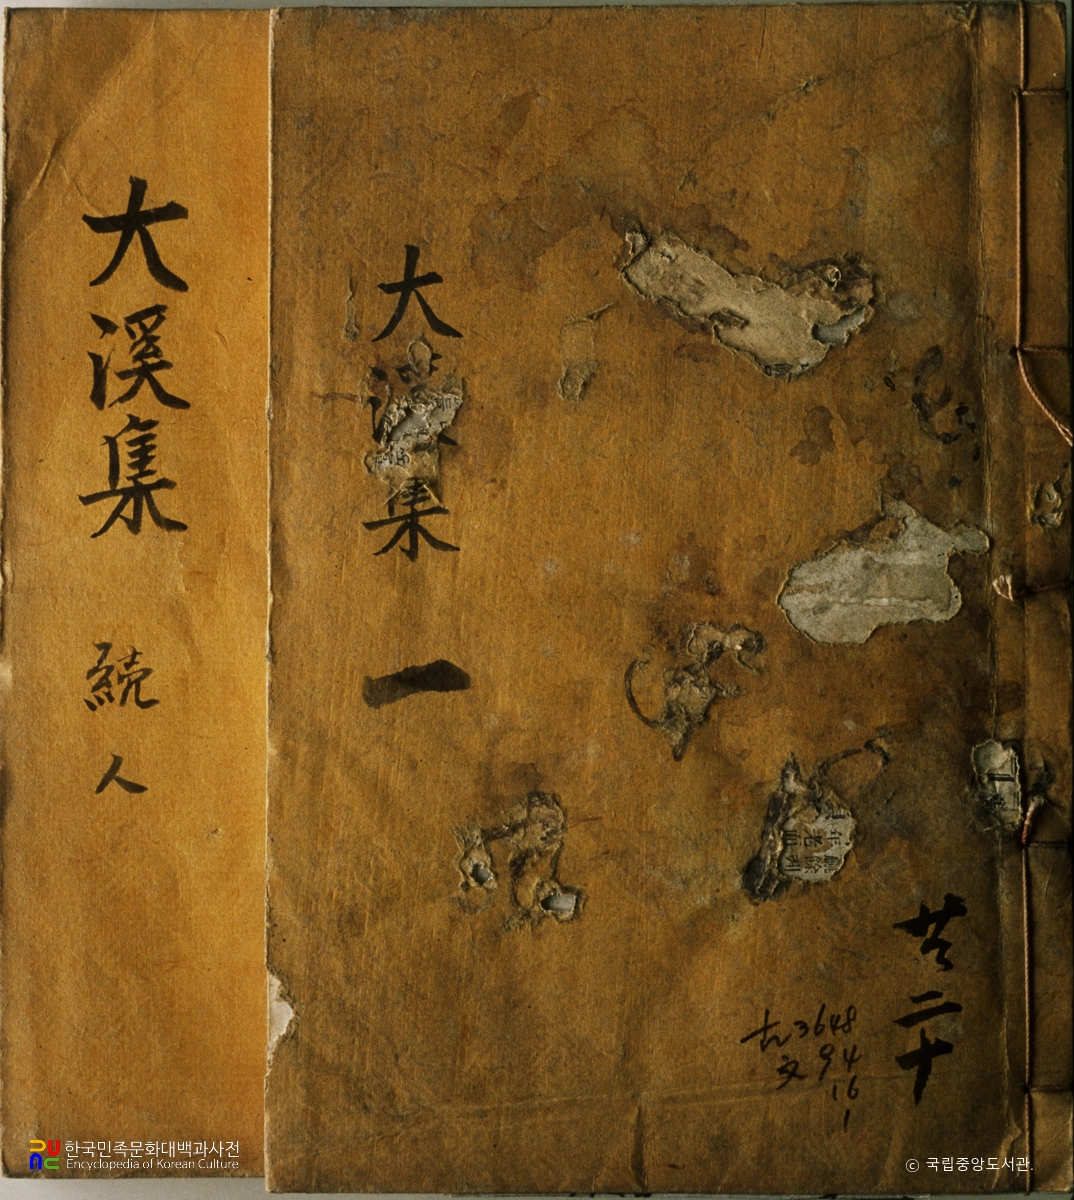 共二十
古3648
文94
16
1
大溪集 一
大溪集 続 人
한국민족문화대백과사전
Encyclopedia of Korean Culture
ⓒ 국립중앙도서관.